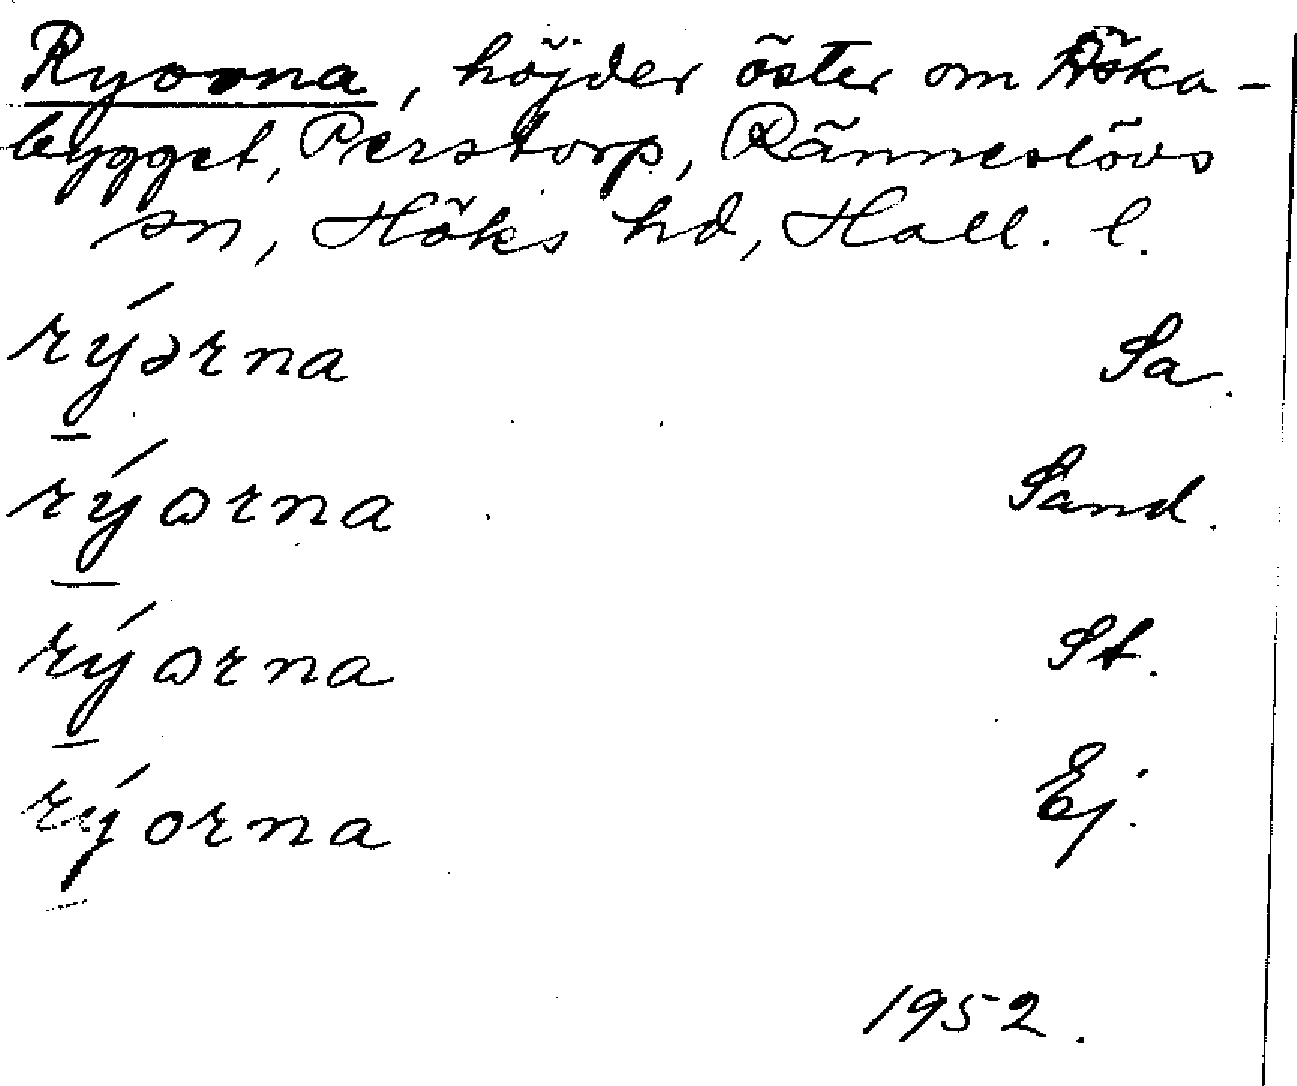 Ryorna, höjder öster om Höka-
bygget, Perstorp, Ränneslövs
sn, Höks hd, Hall. l.
rýərna Sa.
rýɷrna Sand.
rýɷrna St.
rýorna Ej.
1952.